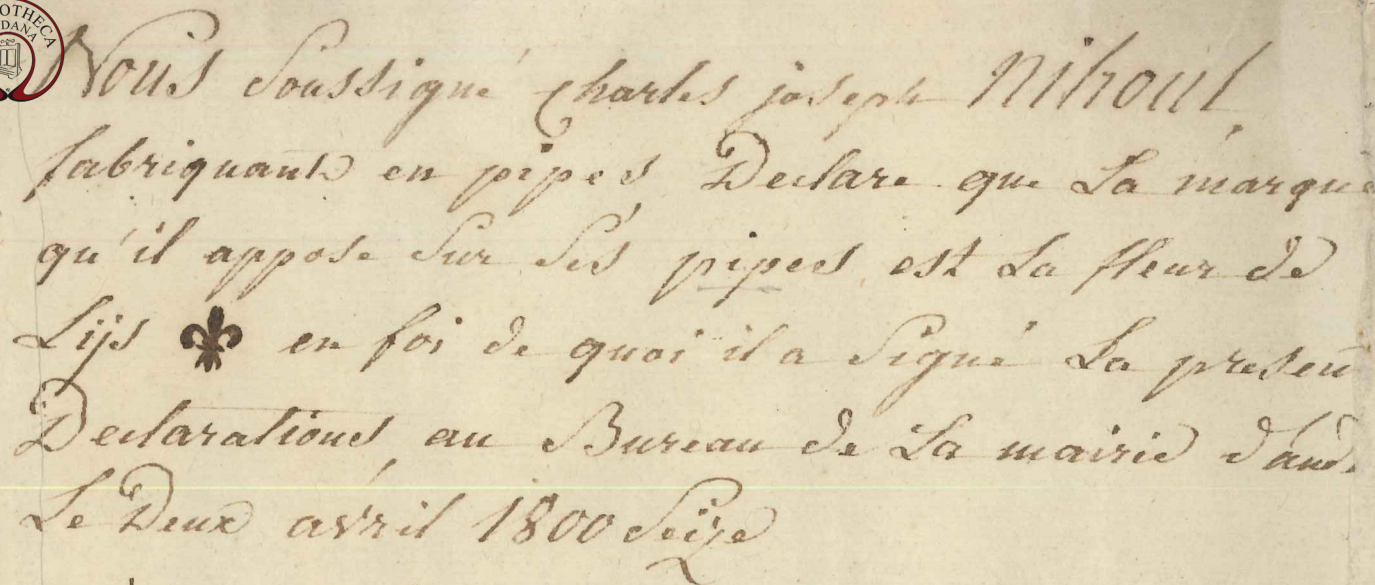 Nous Soussigné Charles joseph Nihoul,
fabriquant en pipes, Declare que La marque
qu'il appose Sur Ses pipes est La fleur de
Lijs ⚜ en foi de quoi il a Signé La presen
Declarations, au Bureau de La mairie d'and
Le Deux avril 1800 Seize